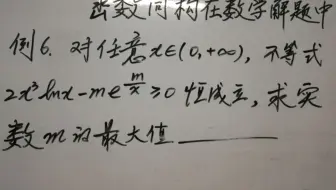 函数同构在数学解题中
例6. 对任意x∈(0,+∞), 不等式
2x³lnx-me^{m/x}≥0 恒成立, 求实
数m的最大值______